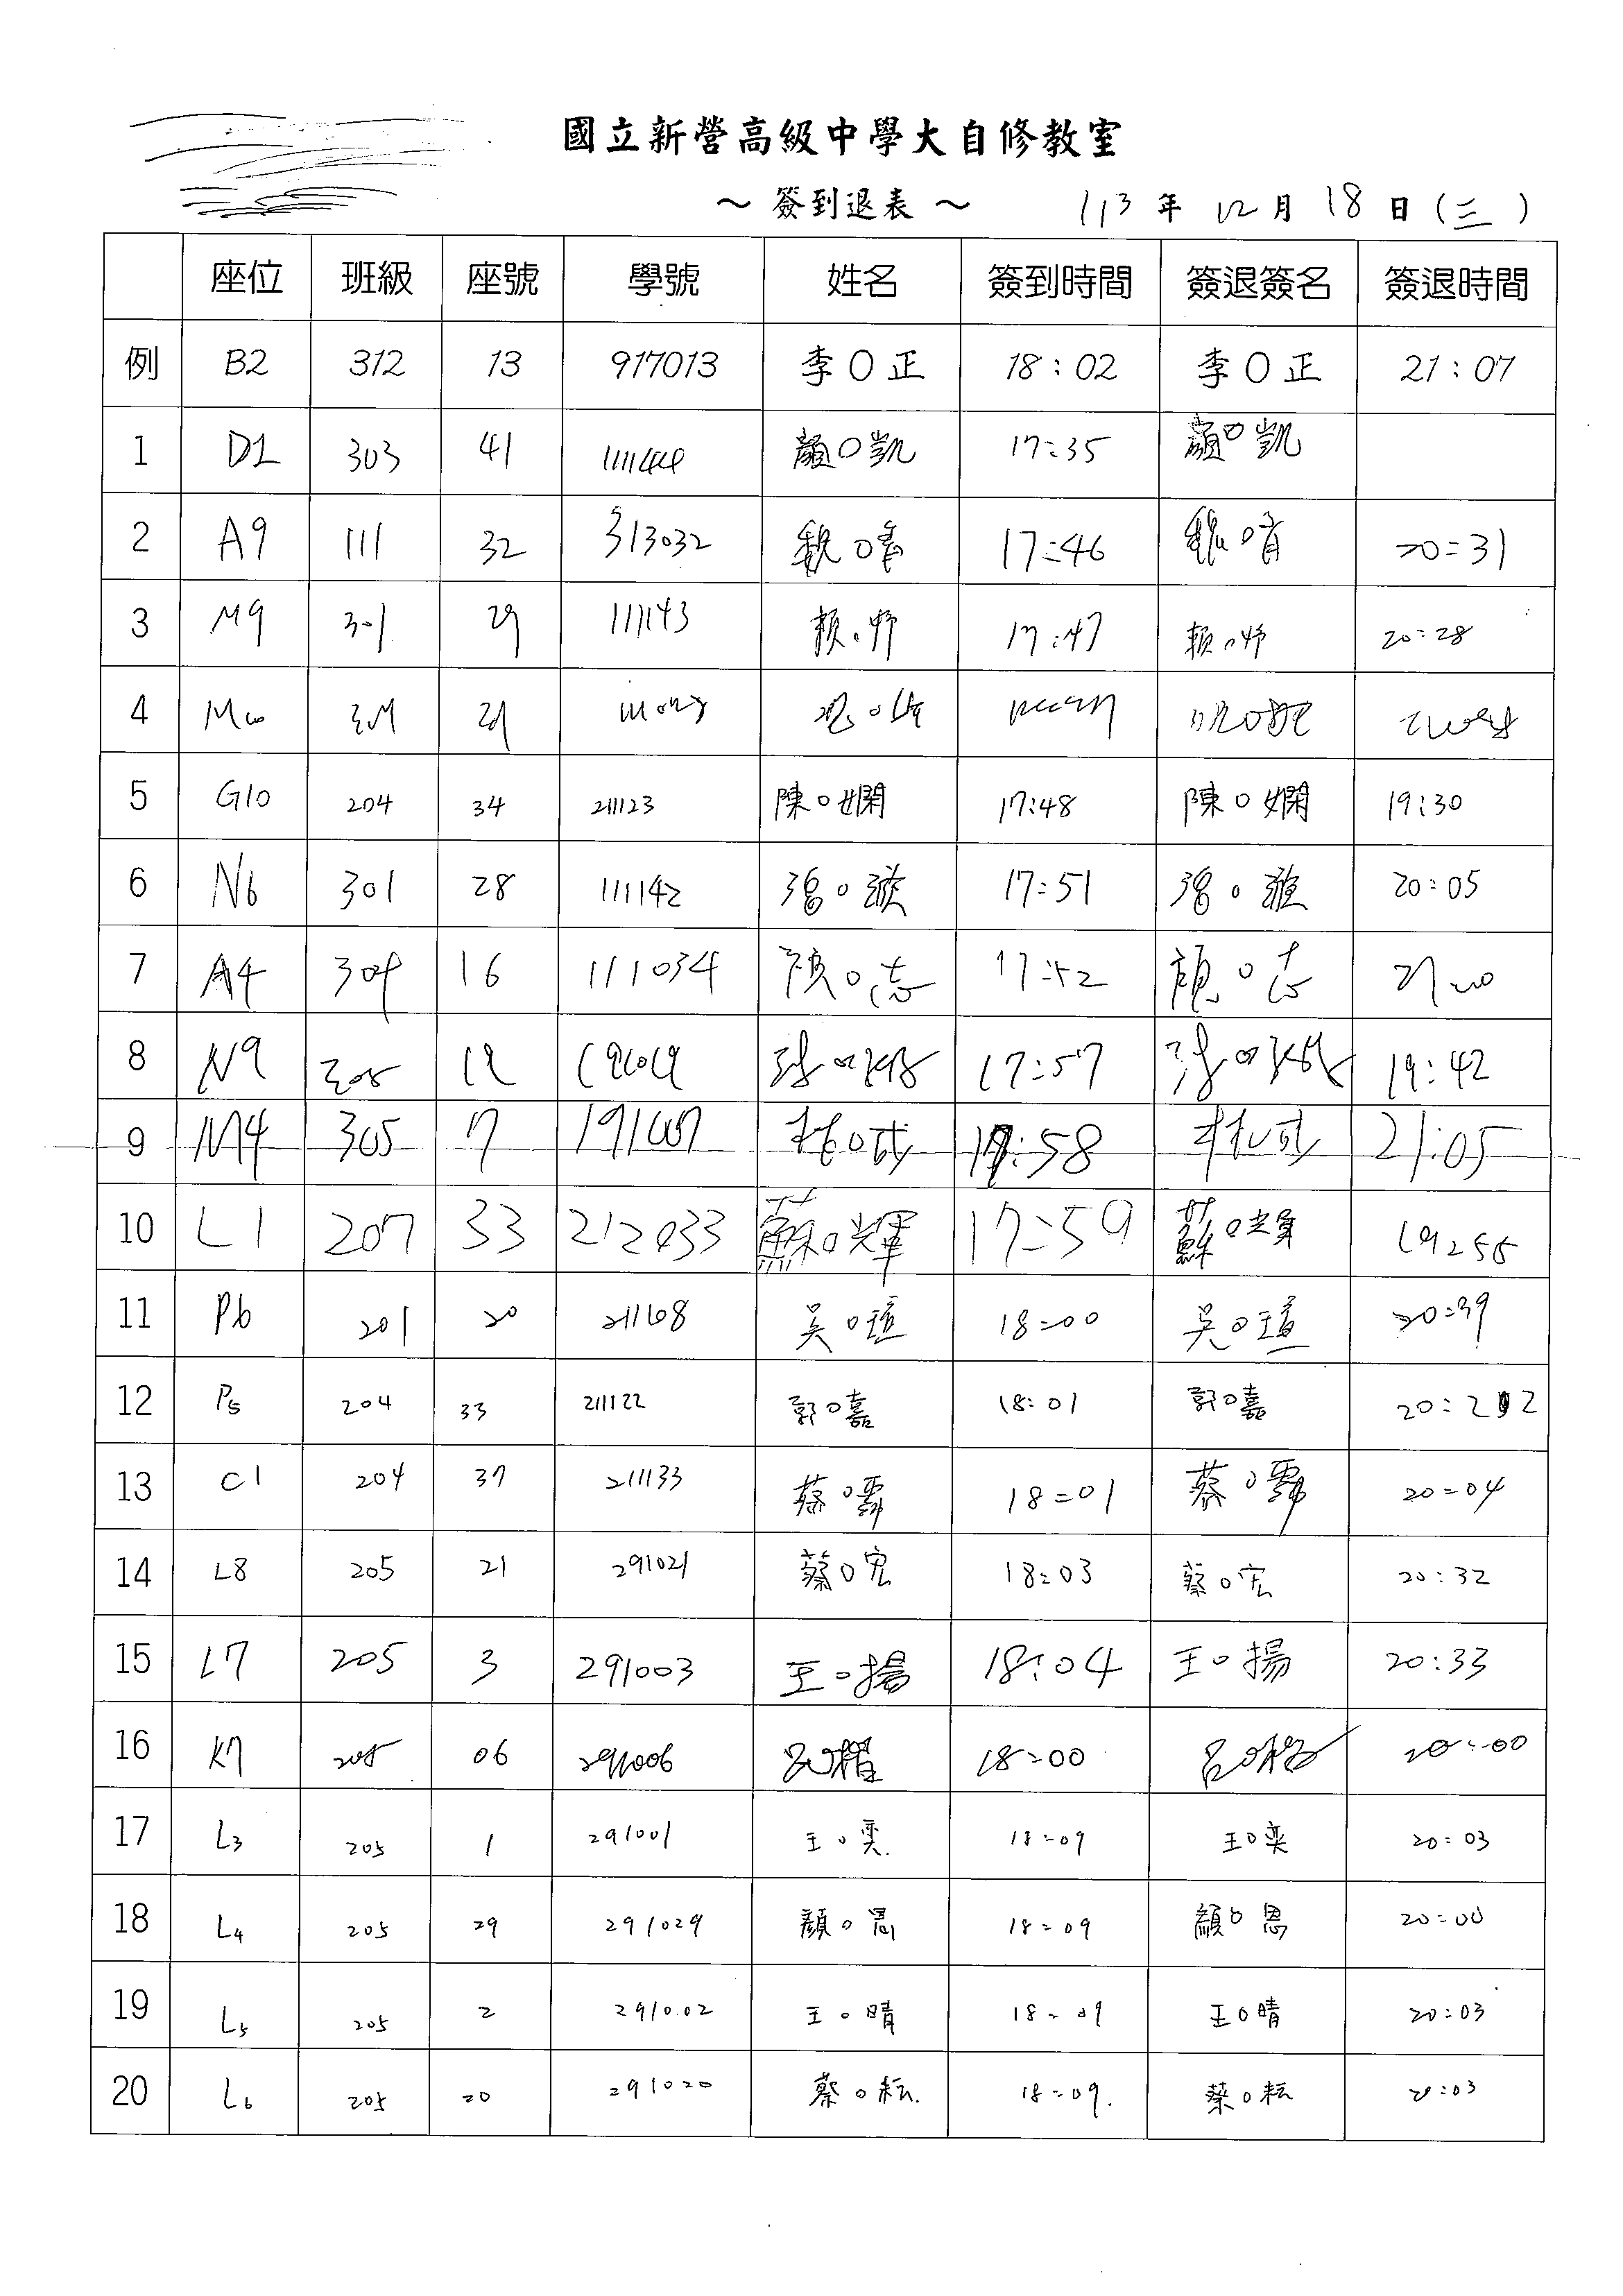 國立新營高級中學大自修教室
～ 簽到退表 ～ 113 年 12 月 18 日 (三)
座位 班級 座號 學號 姓名 簽到時間 簽退簽名 簽退時間
例 B2 312 13 917013 李○正 18:02 李○正 21:07
1 D1 303 41 111144 顏○凱 17:35 顏○凱
2 A9 111 32 313032 魏○ 17:46 魏○ 20:31
3 M9 301 29 111143 賴○妤 17:47 賴○妤 20:28
4
5 G10 204 34 211123 陳○嫻 17:48 陳○嫻 19:30
6 N6 301 28 111142 17:51 20:05
7 A4 304 16 111034 ○志 17:52 ○志
8 N9 305 17:57 19:42
9 M4 305 7 191007 17:58 21:05
10 L1 207 33 212033 蘇○輝 17:59 蘇○輝 19:55
11 P6 201 20 211108 吳○瑄 18:00 吳○瑄 20:39
12 P5 204 33 211122 郭○嘉 18:01 郭○嘉 20:22
13 C1 204 37 211133 蔡○霈 18:01 蔡○霈 20:04
14 L8 205 21 291021 蔡○宏 18:03 蔡○宏 20:32
15 L7 205 3 291003 王○揚 18:04 王○揚 20:33
16 K7 205 06 291006 18:00 20:00
17 L3 205 1 291001 王○奕 18:09 王○奕 20:03
18 L4 205 29 291029 顏○恩 18:09 顏○恩 20:00
19 L5 205 2 291002 王○晴 18:09 王○晴 20:03
20 L6 205 20 291020 蔡○耘 18:09 蔡○耘 20:03